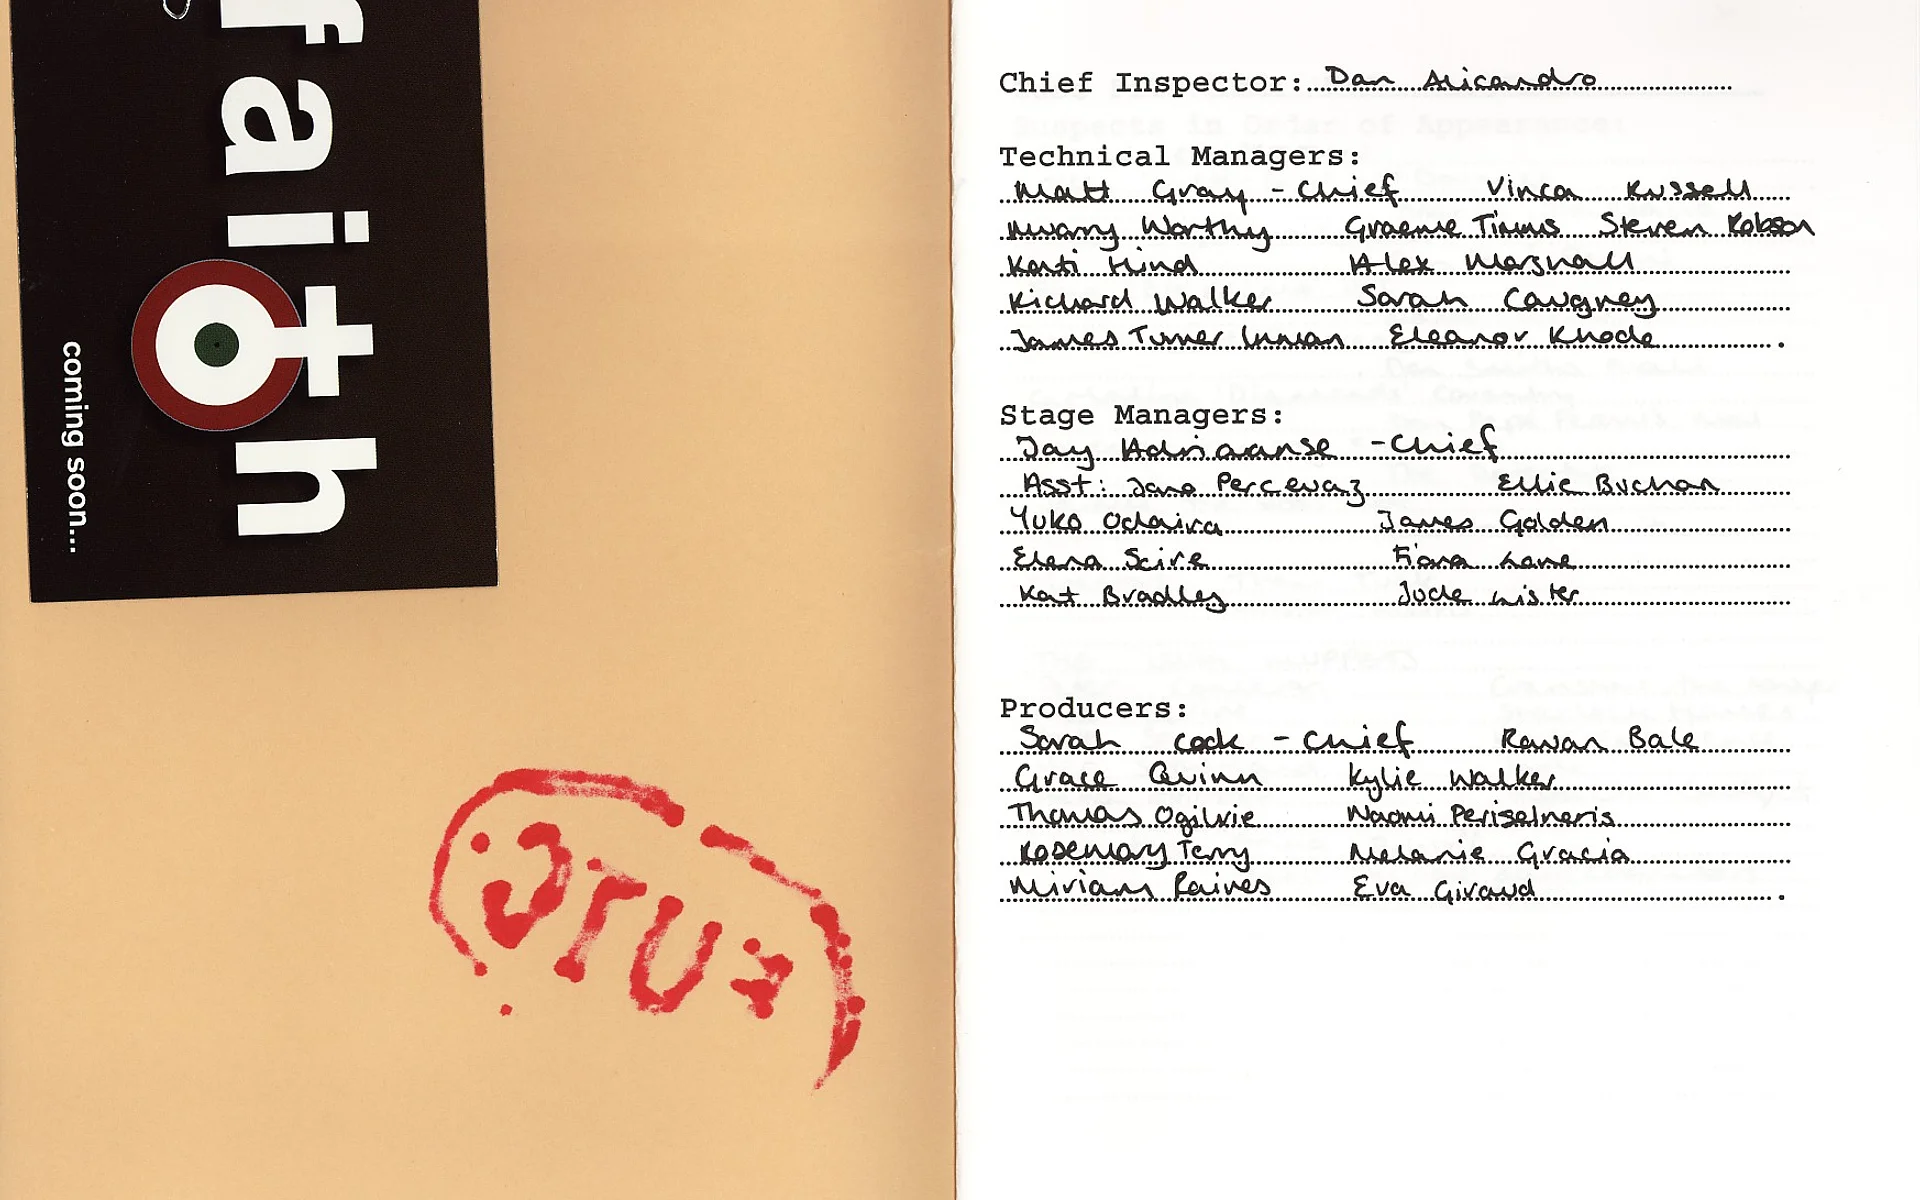 faith
coming soon...
Chief Inspector: Dan Alicandro
Technical Managers:
Matt Gray - Chief Vinca Russell
Worthy Graeme Timms Steven Robson
Kati Hind Alex Marshall
Richard Walker Sarah Caugney
James Turner Inman Eleanor Rhode
Stage Managers:
Jay Adriaanse - Chief
Asst: Jano Percevaz Ellie Buchan
Yuko Odaira James Golden
Elena Scire Fiona Lane
Kat Bradley Jude Lister
Producers:
Sarah Cock - Chief Rowan Bale
Grace Quinn Kylie Walker
Thomas Ogilvie Naomi Periselneris
Rosemary Terry Melanie Gracia
Miriam Raines Eva Giraud